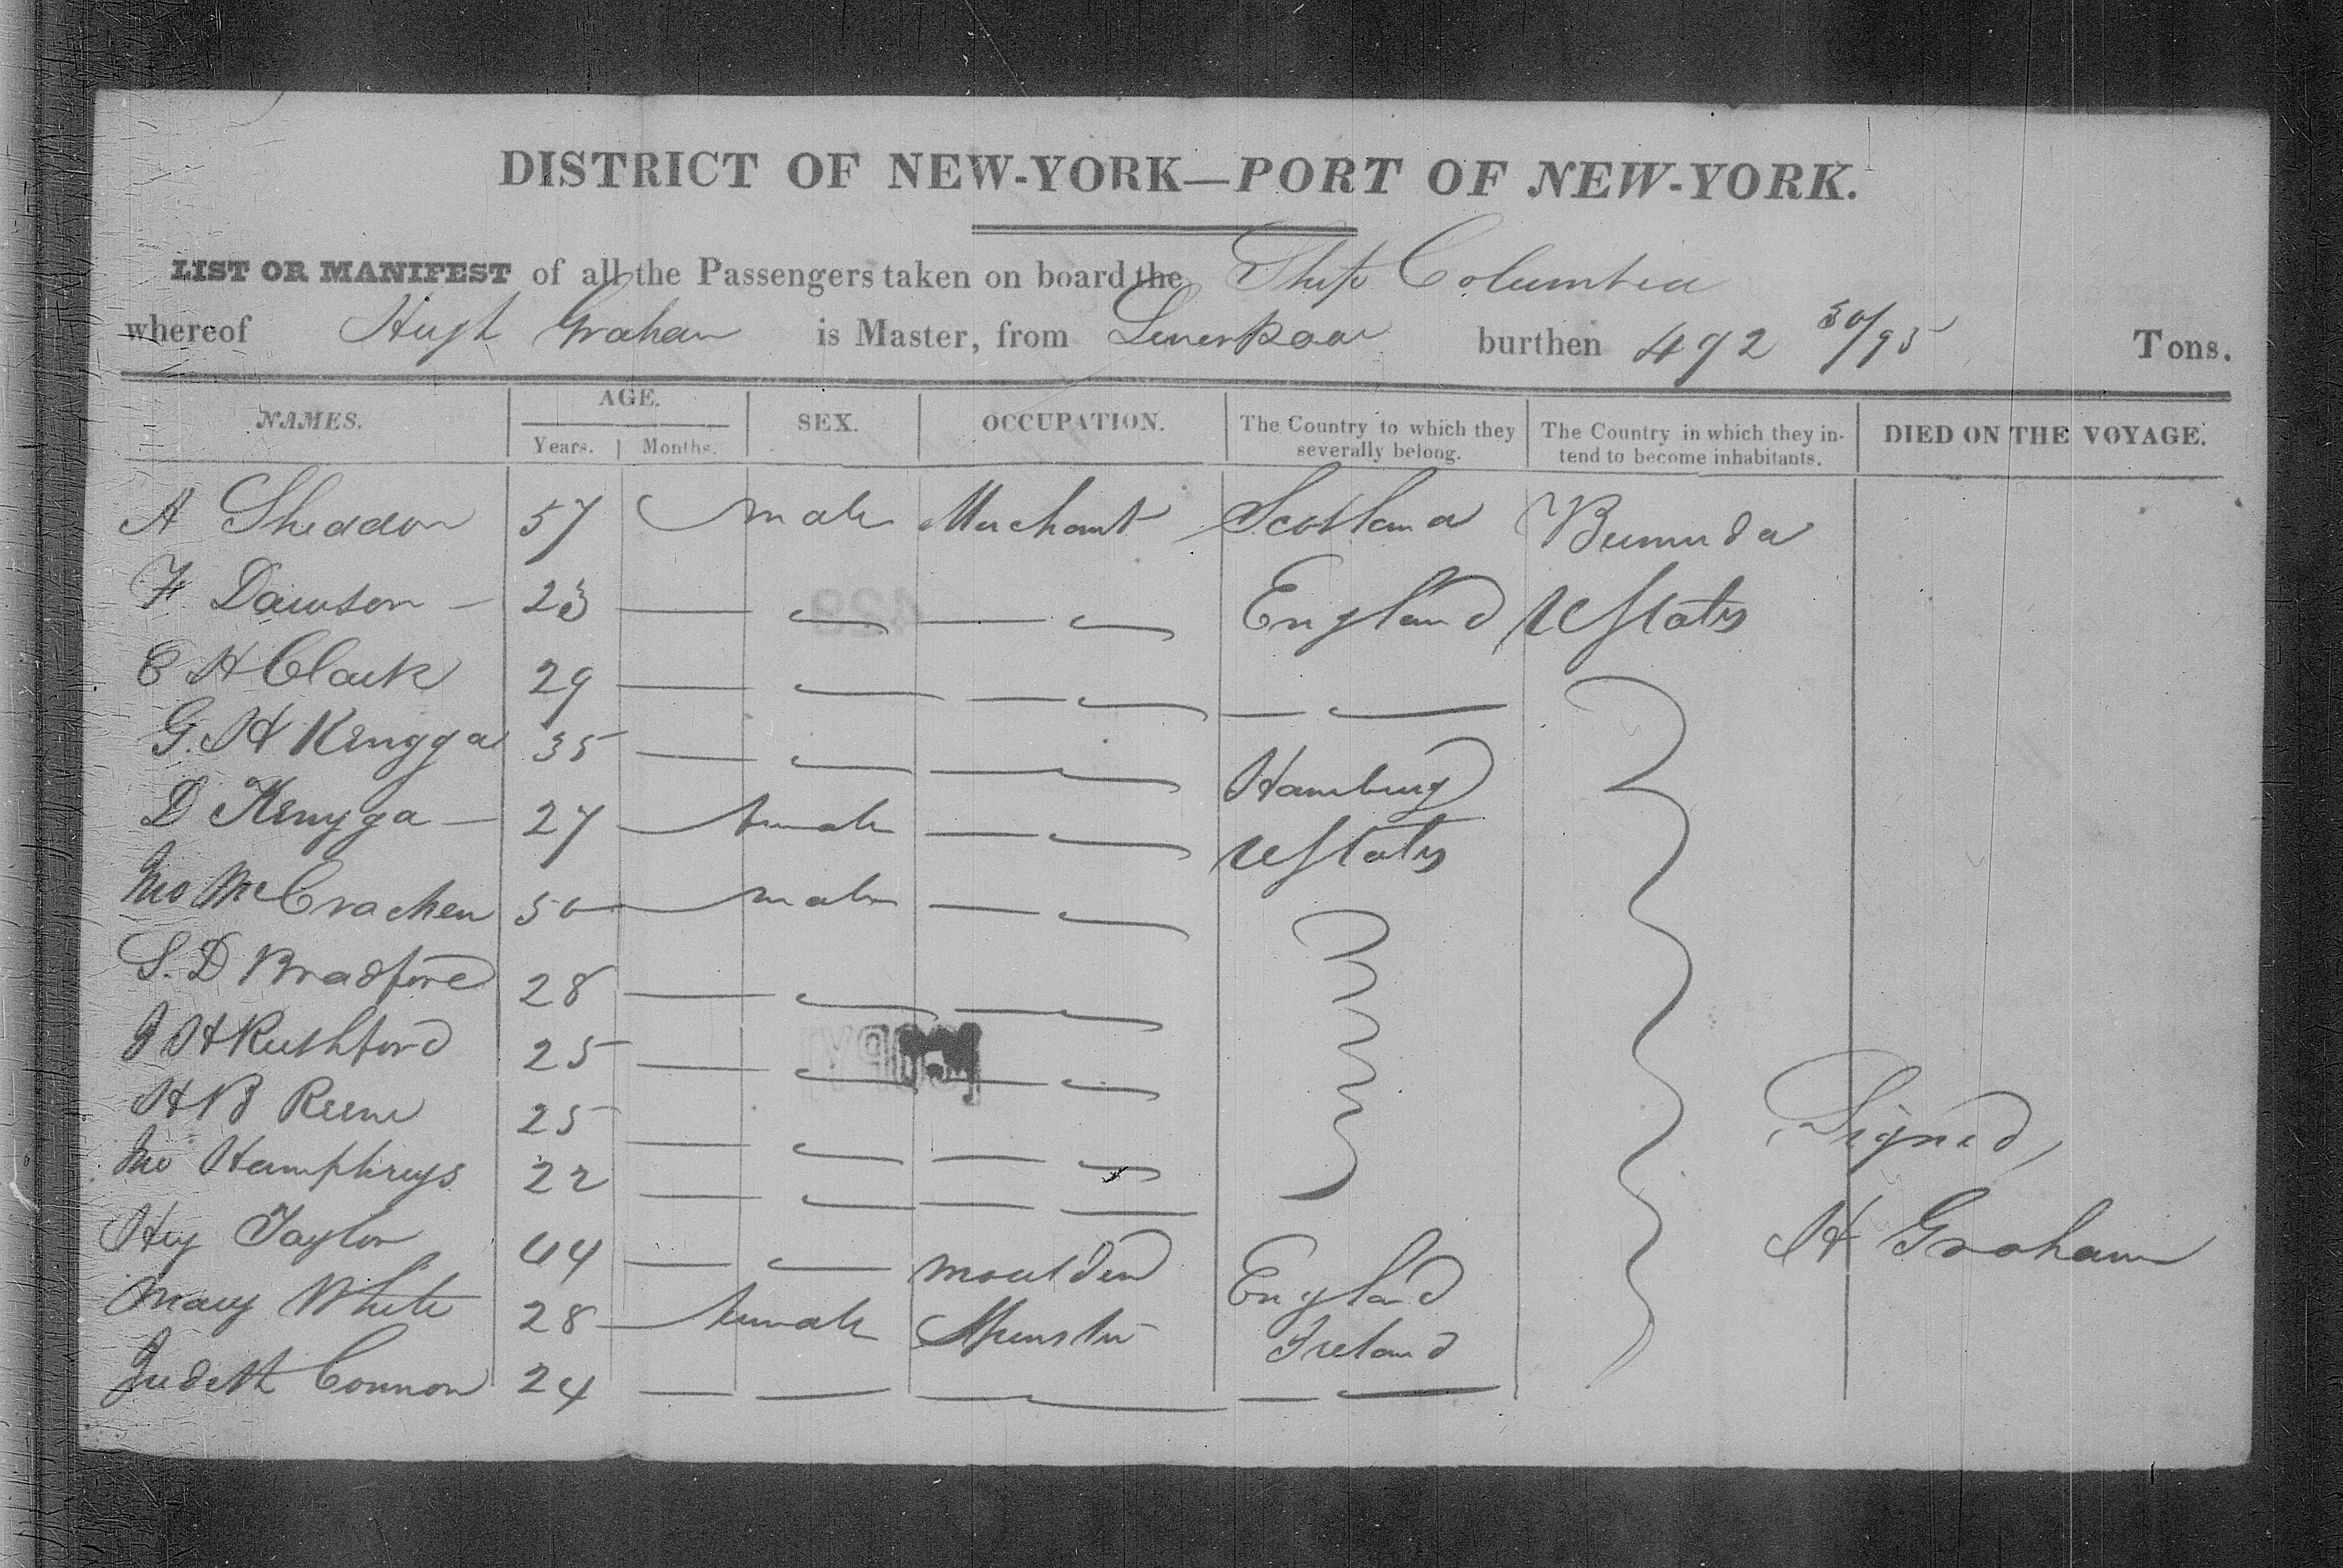 DISTRICT OF NEW-YORK—PORT OF NEW-YORK.
LIST OR MANIFEST of all the Passengers taken on board the Ship Columbia
whereof Hugh Graham is Master, from Liverpool burthen 492 30/95 Tons.
NAMES. AGE. SEX. OCCUPATION. The Country to which they severally belong. The Country in which they intend to become inhabitants. DIED ON THE VOYAGE.
Years. Months.
A Sheddon 57 male Merchant Scotland Bermuda
F Dawson — 23 England UStates
E H Clark 29
G. H Kengga 35 Hamburg
D Kengga — 27 female UStates
Jno McCrachen 50 male
S. D Bradford 28
J H Rushford 25
H B Reene 25
Jno Humphreys 22
Hy Taylor 44 England
Mary White 28 female Spinster Ireland
Judeth Connor 24
Signed,
H Graham
428
COPY